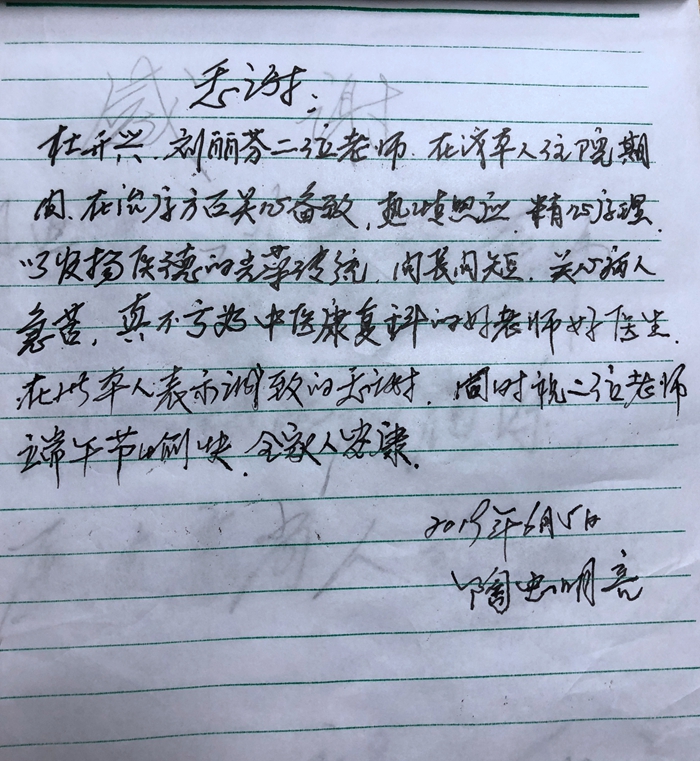 感谢:
杜开兴、刘丽芬二位老师、在本人住院期
间、在治疗方面关心备致,热情照应、精心疗理、
以发扬医德的光荣传统、问长问短、关心病人
急苦,真不亏为中医康复科的好老师好医生.
在此本人表示诚致的感谢.同时祝二位老师
端午节愉快、全家人安康.
2019年6月5日
陶 明亮
感 谢